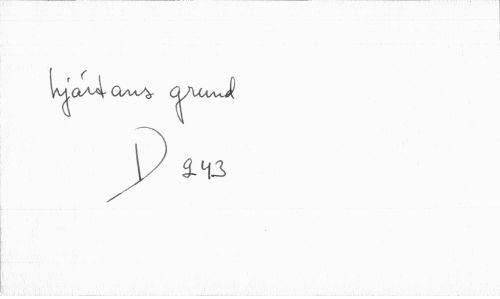 hjärtans grund
D 243